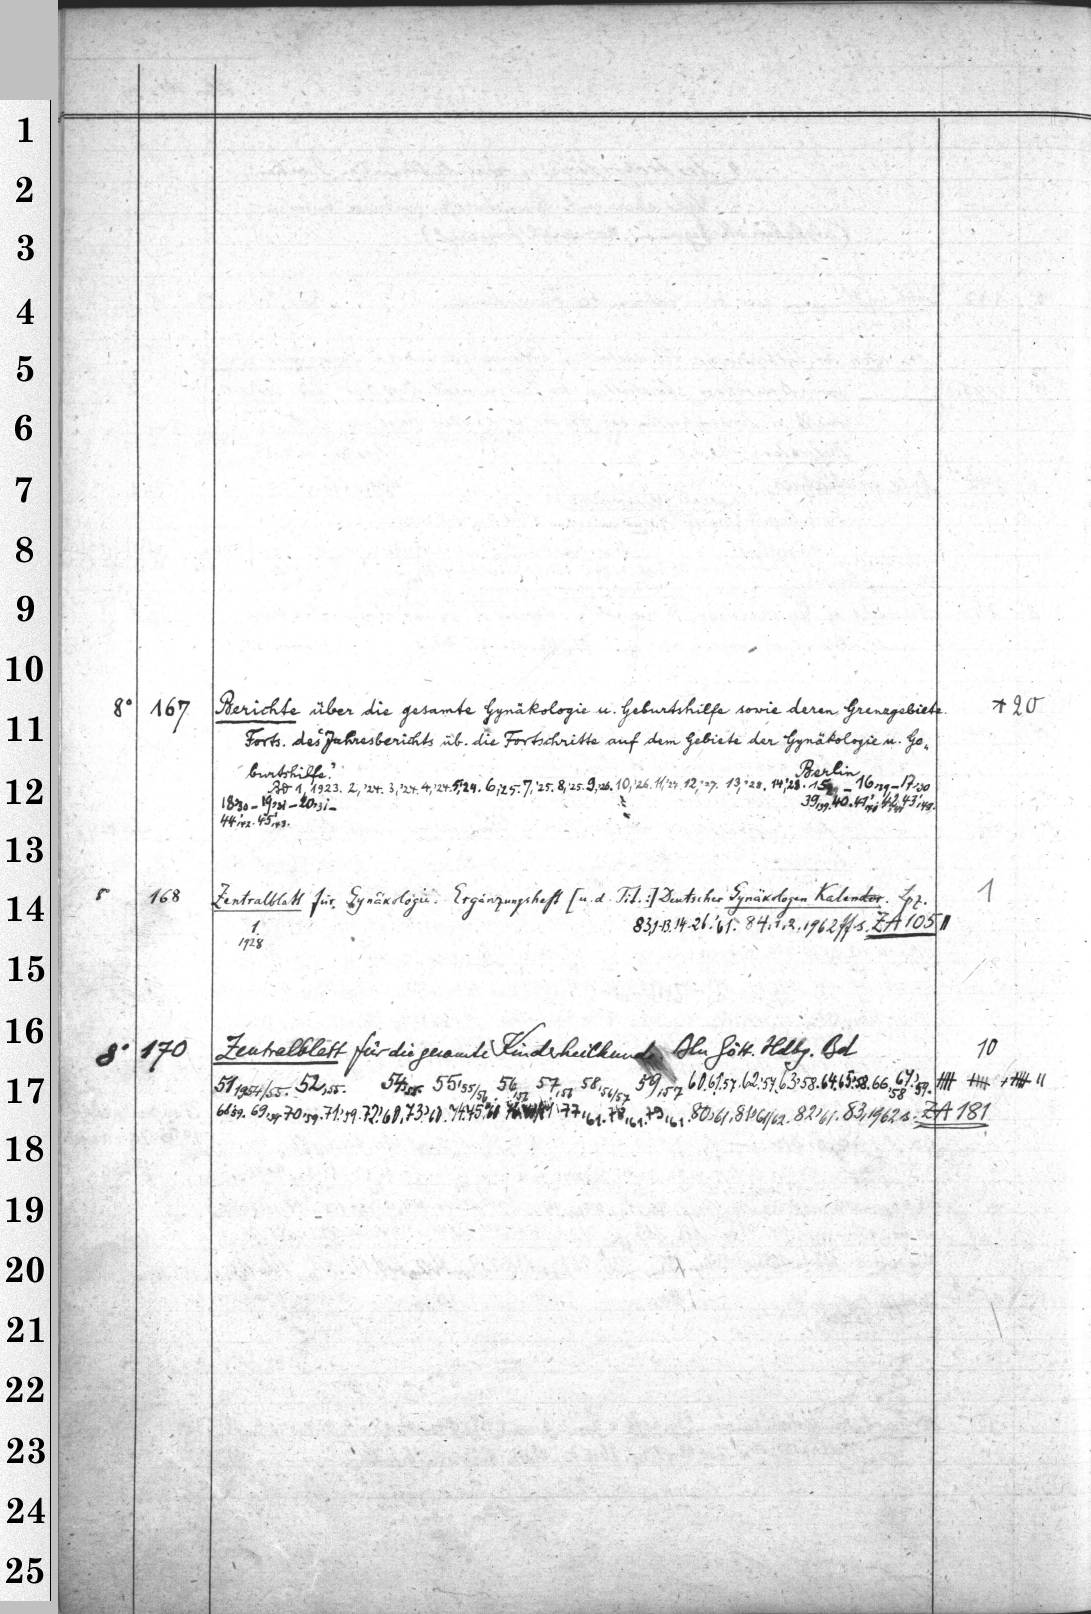 1
2
3
4
5
6
7
8
9
10
8° 167 Berichte über die gesamte Gynäkologie u. Geburtshilfe sowie deren Grenzgebiete + 20
11
Forts. des "Jahresberichts üb. die Fortschritte auf dem Gebiete der Gynäkologie u. Ge-
burtshilfe." Berlin
12
Bd 1, 1923. 2,'24. 3,'24. 4,'24. 5,'24. 6,'25. 7,'25. 8,'25. 9,'26. 10,'26. 11,'27. 12,'27. 13,'28. 14,'28. 15 – 16,'29 – 17,'30
18,'30 – 19,'31 – 20,'31 – 39,'39. 40. 41, 42, 43,
44,'42. 45,'43.
13
168 Zentralblatt für Gynäkologie. Ergänzungsheft [u. d. Tit.:] Deutscher Gynäkologen Kalender. Lpz. 1
14
1 83,1-13. 14-26.'61. 84,1.2.1962 ff s. ZA 105
1928
15
16
8° 170 Zentralblatt für die gesamte Kinderheilkunde Bln Gött. Hdbg. Bd 10
17
51,1954/55. 52,'55. 54,'55 55,'55/56 56,'56 57,'56 58,'56/57 59,'57 60,61,'57. 62,'57. 63,'58. 64. 65,'58. 66, 67,'59.
68,'59. 69,'59. 70,'59. 71,'59. 72,'60. 73,'60. 74. 75,'60 77,'61. 78,'61. 79,'61. 80,'61, 81,'61/62. 82,'61. 83,1962 s. ZA 181
18
19
20
21
22
23
24
25